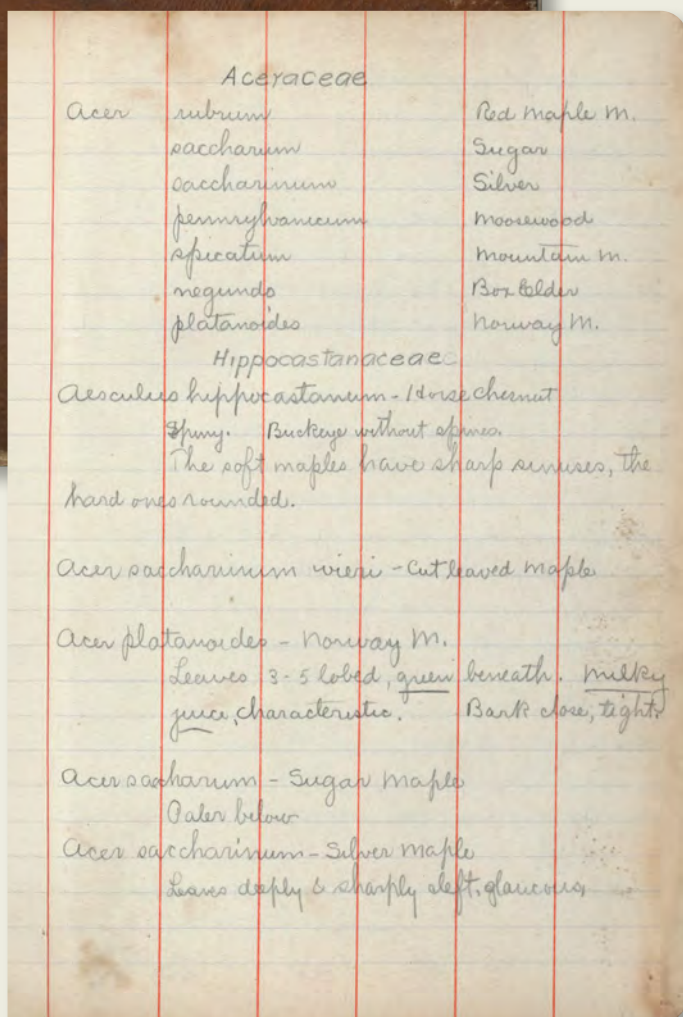 Aceraceae
Acer rubrum Red Maple M.
saccharum Sugar
saccharinum Silver
pennsylvanicum Moosewood
spicatum Mountain M.
negundo Box Elder
platanoides Norway M.
Hippocastanaceae
Aesculus hippocastanum - Horse chesnut
Spiny. Buckeye without spines.
The soft maples have sharp sinuses, the
hard ones rounded.
Acer saccharinum wieri - Cut leaved Maple
Acer platanoides - Norway M.
Leaves 3-5 lobed, green beneath. Milky
juice, characteristic. Bark close, tight,
Acer saccharum - Sugar Maple
Paler below
Acer saccharinum - Silver Maple
Leaves deeply & sharply cleft, glaucous,